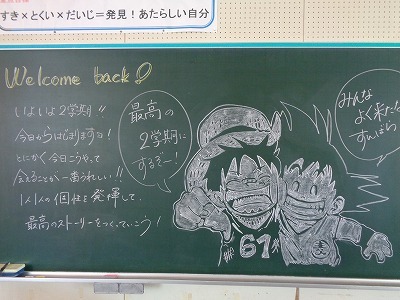 すき×とくい×だいじ=発見！あたらしい自分
Welcome back!
いよいよ2学期!!
今日からはじまりますな!
とにかく今日こうやって
会えることが一番うれしい!!
1人1人の個性を発揮して、
最高のストーリーをつくっていこう!
最高の
2学期に
するぞー!
みんな
よく来たな
67